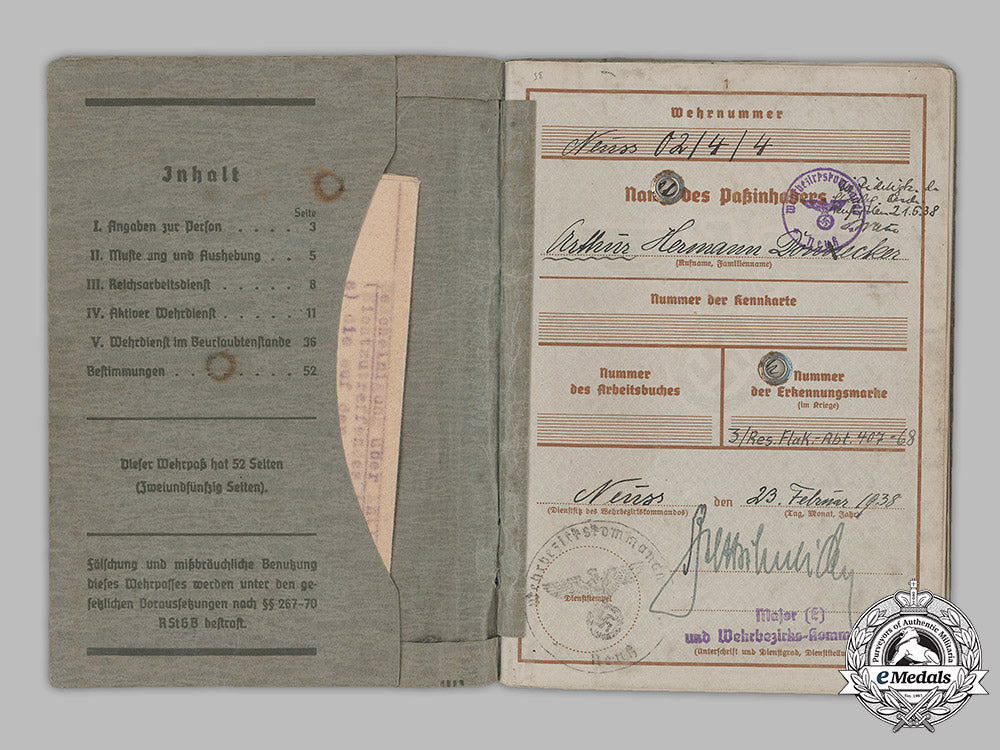 Inhalt
Seite
I. Angaben zur Person . . . . 3
II. Muste ung und Aushebung . . . 5
III. Reichsarbeitsdienst . . . . . 8
IV. Aktiver Wehrdienst . . . . . 11
V. Wehrdienst im Beurlaubtenstande 36
Bestimmungen . . . . . . . . 52
Dieser Wehrpaß hat 52 Seiten
(Zweiundfünfzig Seiten).
Fälschung und mißbräuchliche Benutzung
dieses Wehrpasses werden unter den ge-
setzlichen Voraussetzungen nach §§ 267-70
RStGB bestraft.
1
Wehrnummer
Neuss 02/4/4
Name des Paßinhabers
Wehrbezirkskommando
Neuß
21.5.38
Arthur Hermann
(Rufname, Familienname)
Nummer der Kennkarte
Nummer
des Arbeitsbuches
Nummer
der Erkennungsmarke
(im Kriege)
3/Res. Flak.-Abt. 407-68
Neuss den 23. Februar 1938
(Dienstsitz des Wehrbezirkskommandos) (Tag, Monat, Jahr)
Wehrbezirkskommando
Dienststempel
Neuß
Major (E)
und Wehrbezirks-Komm
(Unterschrift und Dienstgrad, Dienststellung
Purveyors of Authentic Military Awards
eMedals